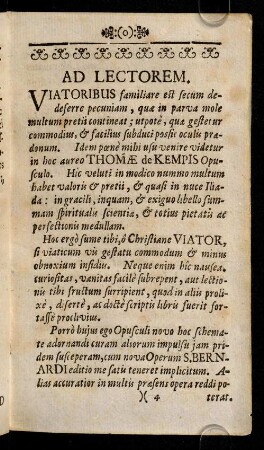 (0)
AD LECTOREM.
VIATORIBUS familiare est secum de-
deserre pecuniam, quæ in parva mole
multum pretii contineat; utpotè, quæ gestetur
commodius, & facilius subduci possit oculis præ-
donum. Idem pœnè mihi usu venire videtur
in hoc aureo THOMÆ de KEMPIS Opu-
sculo. Hic veluti in modico nummo multum
habet valoris & pretii, & quasi in nuce Ilia-
da: in gracili, inquam, & exiguo libello sum-
mam spiritualis scientiæ, & totius pietatis ac
perfectionis medullam.
Hoc ergò sume tibi, ô Christiane VIATOR,
si viaticum vis gestatu commodum & minus
obnoxium insidiis. Neque enim hîc nausea,
curiositas, vanitas facilè subrepent, aut lectio-
nis tibi fructum surripient, quod in aliis proli-
xè, disertè, ac doctè scriptis libris fuerit for-
tassè proclivius.
Porrò hujus ego Opusculi novo hoc schema-
te adornandi curam aliorum impulsu jam pri-
dem susceperam, cum nova Operum S. BER-
NARDI editio me satis teneret implicitum. A-
lias accuratior in multis præsens opera reddi po-
)( 4 terat.